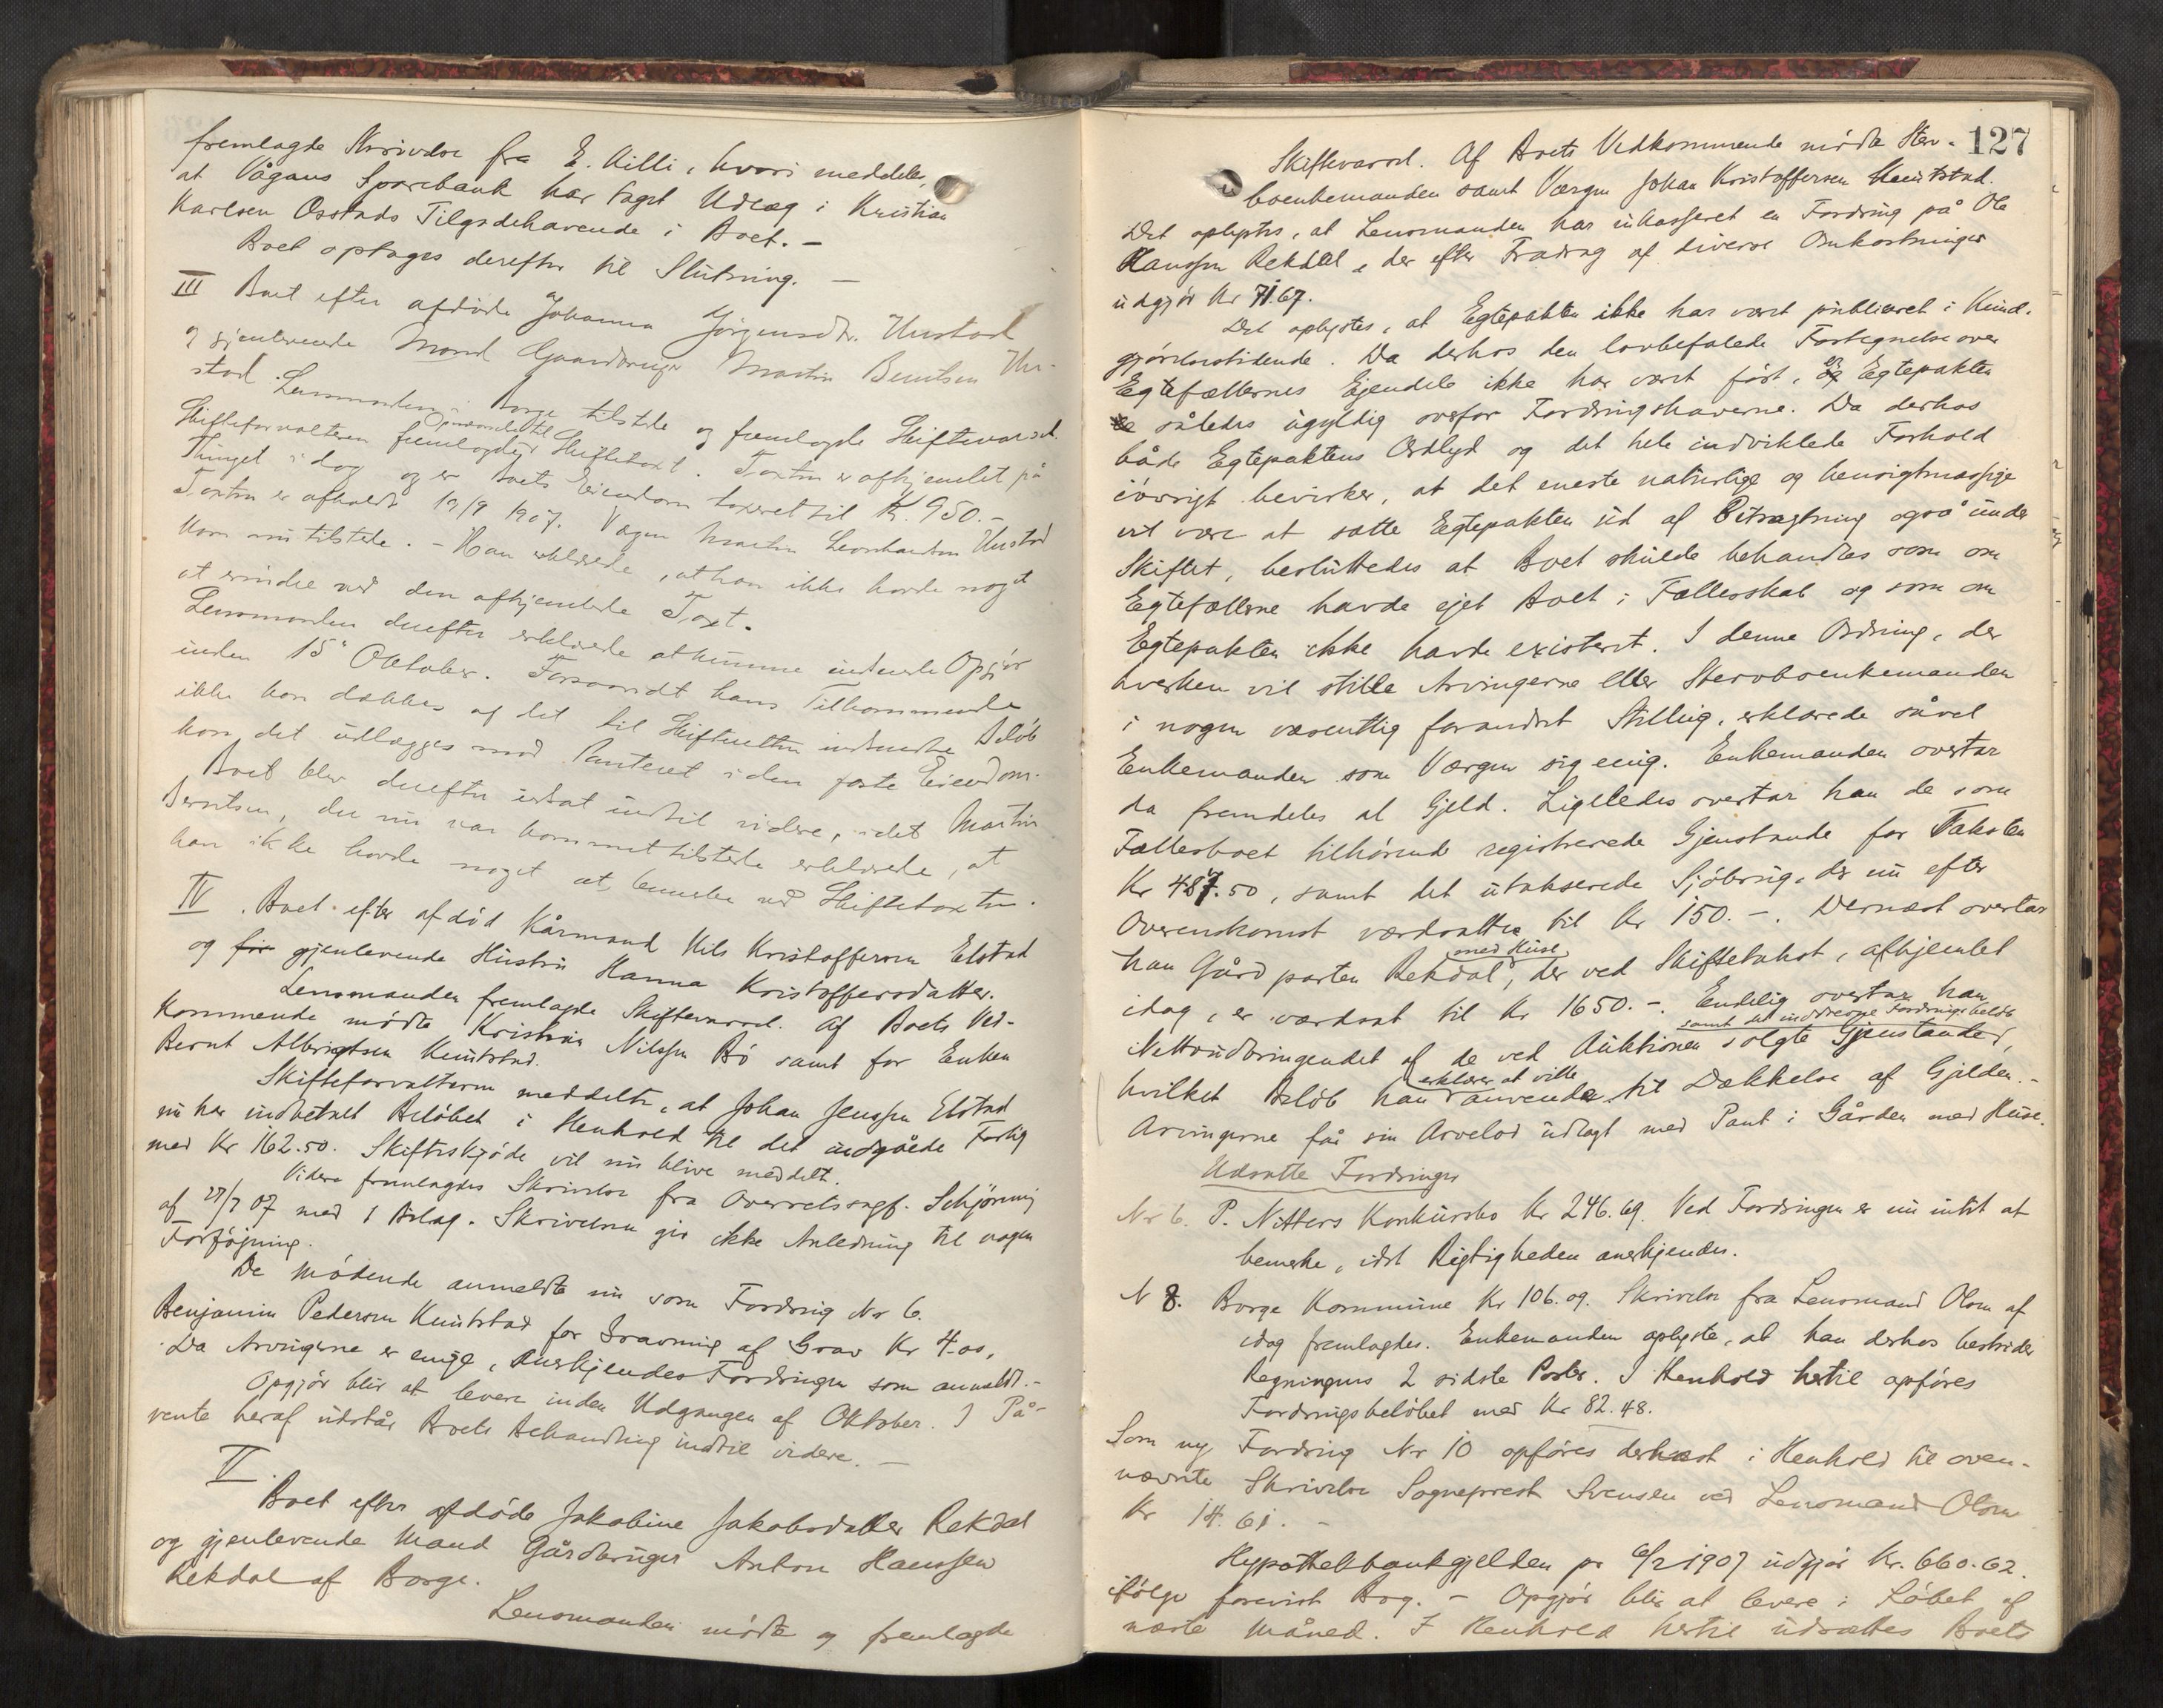 fremlagde Skrivelse fra E. Killi, hvori meddeles,
at Vågans Sparebank har taget Udlæg i Kristian
Karlsen Osstads Tilgodehavende i Boet. -
Boet optages derefter til Slutning. -
III Boet efter afdøde Johanna Jørgensdtr. Unstad
og gjenlevende Mand Gaardbruger Martin Berntsen Un-
stad.
Lensmanden i Borge tilstede og fremlagde Skiftevarsel.
Skifteforvalteren fremlagde Skiftetaxt. Taxten er afhjemlet på
Thinget i dag og er Boets Eiendom taxeret til Kr. 950.-
Taxten er afholdt 19/9 1907. Vergen Martin Leonhardsen Unstad
kom nu tilstede. - Han erklærede, at han ikke havde noget
at erindre ved den afhjemlede Taxt.
Lensmanden derefter erklærede at kunne indsende Opgjør
inden 15de Oktober. Forsaavidt hans Tilkommende
ikke kan dækkes af det til Skifteretten indsendte Beløb
kan det udlægges mod Panteret i den faste Eiendom.
Boet blev derefter udsat indtil videre, idet Martin
Berntsen, der nu var kommet tilstede erklærede, at
han ikke havde noget at bemerke ved Skiftetaxten.
IV. Boet efter afdød Kårmand Nils Kristoffersen Elstad
og gjenlevende Hustru Hanna Kristoffersdatter.
Lensmanden fremlagde Skiftevarsel. Af Boets Ved-
kommende mødte Kristian Nilssen Bø samt for Enken
Bernt Albrigtsen Knutstad.
Skifteforvalteren meddelte, at Johan Jenssen Elstad
nu har indbetalt Beløbet i Henhold til det indgåede Forlig
med Kr 162.50. Skifteskjøde vil nu blive meddelt.
Videre fremlagdes Skrivelse fra Overretssagf. Schjønning
af 27/7 07 med 1 Bilag. Skrivelsen gir ikke Anledning til nogen
Forføjning.
De mødende anmeldte nu som Fordring Nr 6.
Benjamin Pedersen Knutstad for Gravning af Grav Kr 4.00.
Da Arvingerne er enige, anerkjendes Fordringen som anmeldt.-
Opgjør blir at levere inden Udgangen af Oktober. I På-
vente heraf udstår Boets Behandling indtil videre. -
V.
Boet efter afdøde Jakobine Jakobsdatter Rekdal
og gjenlevende Mand Gårdbruger Anton Hanssen
Rekdal af Borge.
Lensmanden mødte og fremlagde
127
Skiftevarsel. Af Boets Vedkommende mødte Sterv-
boenkemanden samt Værgen Johan Kristoffersen Knutstad.
Det oplystes, at Lensmanden har inkasseret en Fordring på Ole
Hanssen Rekdal, der efter Fradrag af diverse Omkostninger
udgjør Kr 71.67.
Det oplystes, at Egtepakten ikke har været publiceret i Kund-
gjørelsestidende. Da derhos den lovbefalede Fortegnelse over
Egtefællernes Ejendele ikke har været ført, er Egtepakten
således ugyldig overfor Fordringshaverne. Da derhos
både Egtepaktens Ordlyd og det hele indviklede Forhold
iøvrigt bevirker, at det eneste naturlige og hensigtmæssige
vil være at sætte Egtepakten ud af Betragtning også under
Skiftet, besluttedes at Boet skulde behandles som om
Egtefællerne havde ejet Boet i Fællesskab og som om
Egtepakten ikke havde existeret. I denne Ordning, der
hverken vil stille Arvingerne eller Stervboenkemanden
i nogen væsentlig forandret Stilling, erklærede såvel
Enkemanden som Værgen sig enig. Enkemanden overtar
da fremdeles al Gjeld. Ligeledes overtar han de som
Fællesboet tilhørende registrerede Gjenstande for Taksten
Kr 487.50, samt det utakserede Sjøbrug, der nu efter
Overenskomst værdsattes til Kr 150.-. Dernæst overtar
han Gårdparten Rekdal med Huse, der ved Skiftetakst, afhjemlet
idag, er værdsat til Kr 1650.-. Endelig overtar han
Nettoudbringendet af de ved Auktionen solgte Gjenstande, samt det inddrevne Fordringsbeløb
hvilket Beløb han erklærer at ville anvende til Dækkelse af Gjelden.-
Arvingerne få sin Arvelod udlagt med Pant i Gården med Huse.
Udsatte Fordringer
Nr 6. P. Nitters Konkursbo Kr 246.69. Ved Fordringen er nu intet at
bemerke, idet Rigtigheden anerkjendes.
N 8. Borge Kommune Kr 106.09. Skrivelse fra Lensmand Olsen af
idag fremlagdes. Enkemanden oplyste, at han derhos bestrider
Regningens 2 sidste Poster. I Henhold hertil opføres
Fordringsbeløbet med Kr 82.48.
Som ny Fordring Nr 10 opføres dernæst i Henhold til oven-
nævnte Skrivelse Sogneprest Svensen ved Lensmand Olsen
Kr 14.61. -
Hypothekbankgjelden pr 6/2 1907 udgjør Kr. 660.62.
ifølge forevist Bog. - Opgjør blir at levere i Løbet af
næste Måned. I Henhold hertil udsættes Boets